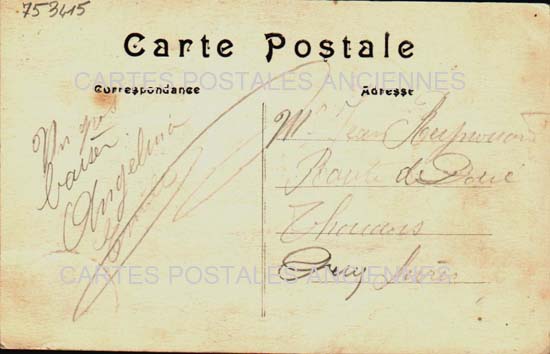 753415
Carte Postale
CARTES POSTALES ANCIENNES
Correspondance
Adresse
Un gros
baiser
Angelina
Mr Jean
Route de Doué
Thouars
Deux Sèvres
CARTES POSTALES ANCIENNES